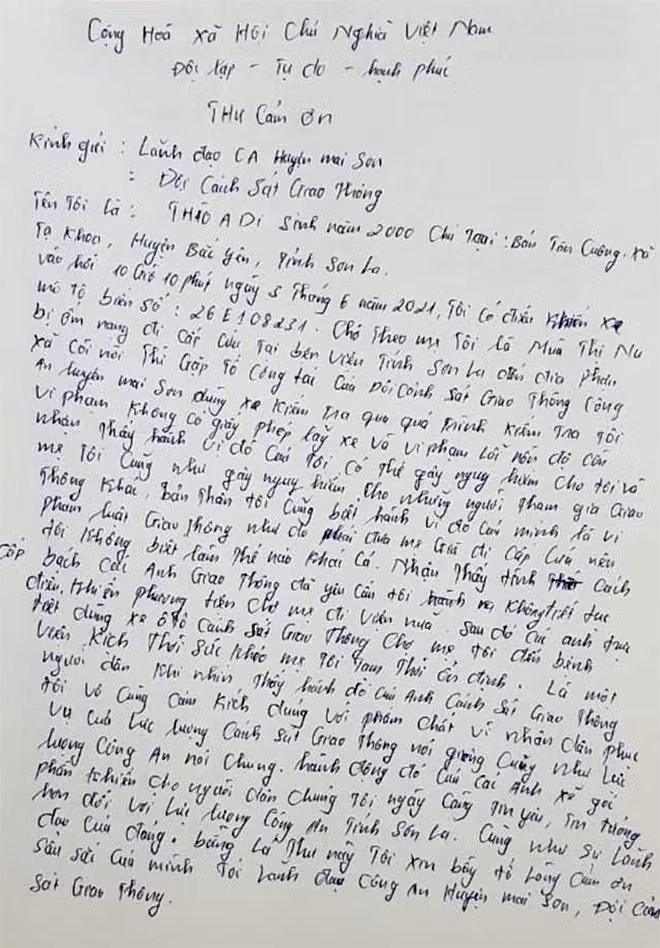 Cộng Hoá xã Hội Chủ Nghĩa Việt Nam
Độc lập - Tự do - hạnh phúc
THƯ Cảm ơn
Kính gửi : Lãnh đạo CA Huyện mai Sơn
: Đội Cảnh Sát Giao Thông
Tên Tôi là : THÀO A Di Sinh năm 2000 Chú Tại : Bản Tân Cuông. xã
Tạ Khoa, Huyện Bắc yên, Tỉnh Sơn La.
vào hồi 10 Giờ 10 phút ngày 5 Tháng 6 năm 2021, Tôi có điều khiển xe
mô tô biển số : 26E108231. Chở Theo mẹ Tôi là Mùa Thị Nu
bị ốm nặng đi Cấp Cứu Tại bện viên Tỉnh Sơn La đến địa phận
xã Cồi nòi Thì Gặp Tổ Công tác Của Đôi Cảnh Sát Giao Thông Công
An huyện mai Sơn dừng xe Kiểm Tra qua quá Trình Kiểm Tra Tôi
vi phạm Không Có giấy phép lấy xe và vi phạm Lỗi nồn độ Cồn
nhận Thấy hành vi đó Của Tôi, Có Thể gây nguy hiểm Cho tôi và
mẹ Tôi Cũng như gây nguy hiểm Cho những người Tham gia Giao
Thông Khác, Bản Thân tôi Cũng biết hành vi đó Của mình là vi
phạm luật Giao Thông như do phải đưa mẹ Già đi Cấp Cứu nên
tôi Không biết làm Thế nào Khai Cả. Nhận Thấy tính Cách
Cấp bạch Các Anh Giao Thông đã yêu Cầu tôi Không tiết tục
điều Khiển phương tiên Chở mẹ đi viện nữa. Sau đó Các anh trực
tiết dùng xe ôtô Cảnh Sát Giao Thông Chở mẹ tôi đến bệnh
viên Kịch Thời Sức Khỏe mẹ Tôi Tạm Thời ổn định. Là một
người dân Khi nhìn Thấy hành đó Của Anh Cảnh Sát Giao Thông
tôi vô Cùng Cảm Kích đúng Với phẩm Chất Vì nhân dân phục
vụ Của Lực Lượng Cảnh Sát Giao Thông nói giêng Cũng như Lực
lượng Công An nói Chung. hành động đó Của Các Anh Xẽ góp
phần Khiến Cho người dân Chúng Tôi ngày Càng Tin yêu, Tin tưởng
hơn đối với Lực lượng Công An Tỉnh Sơn La. Cũng như Sự Lãnh
đạo Của đảng. bằng Lá Thư này Tôi Xin bày tỏ Lòng Cảm ơn
Sâu Sắc Của mình Tới Lãnh đạo Công An Huyện mai Sơn, Đội Cảnh
Sát Giao Thông.